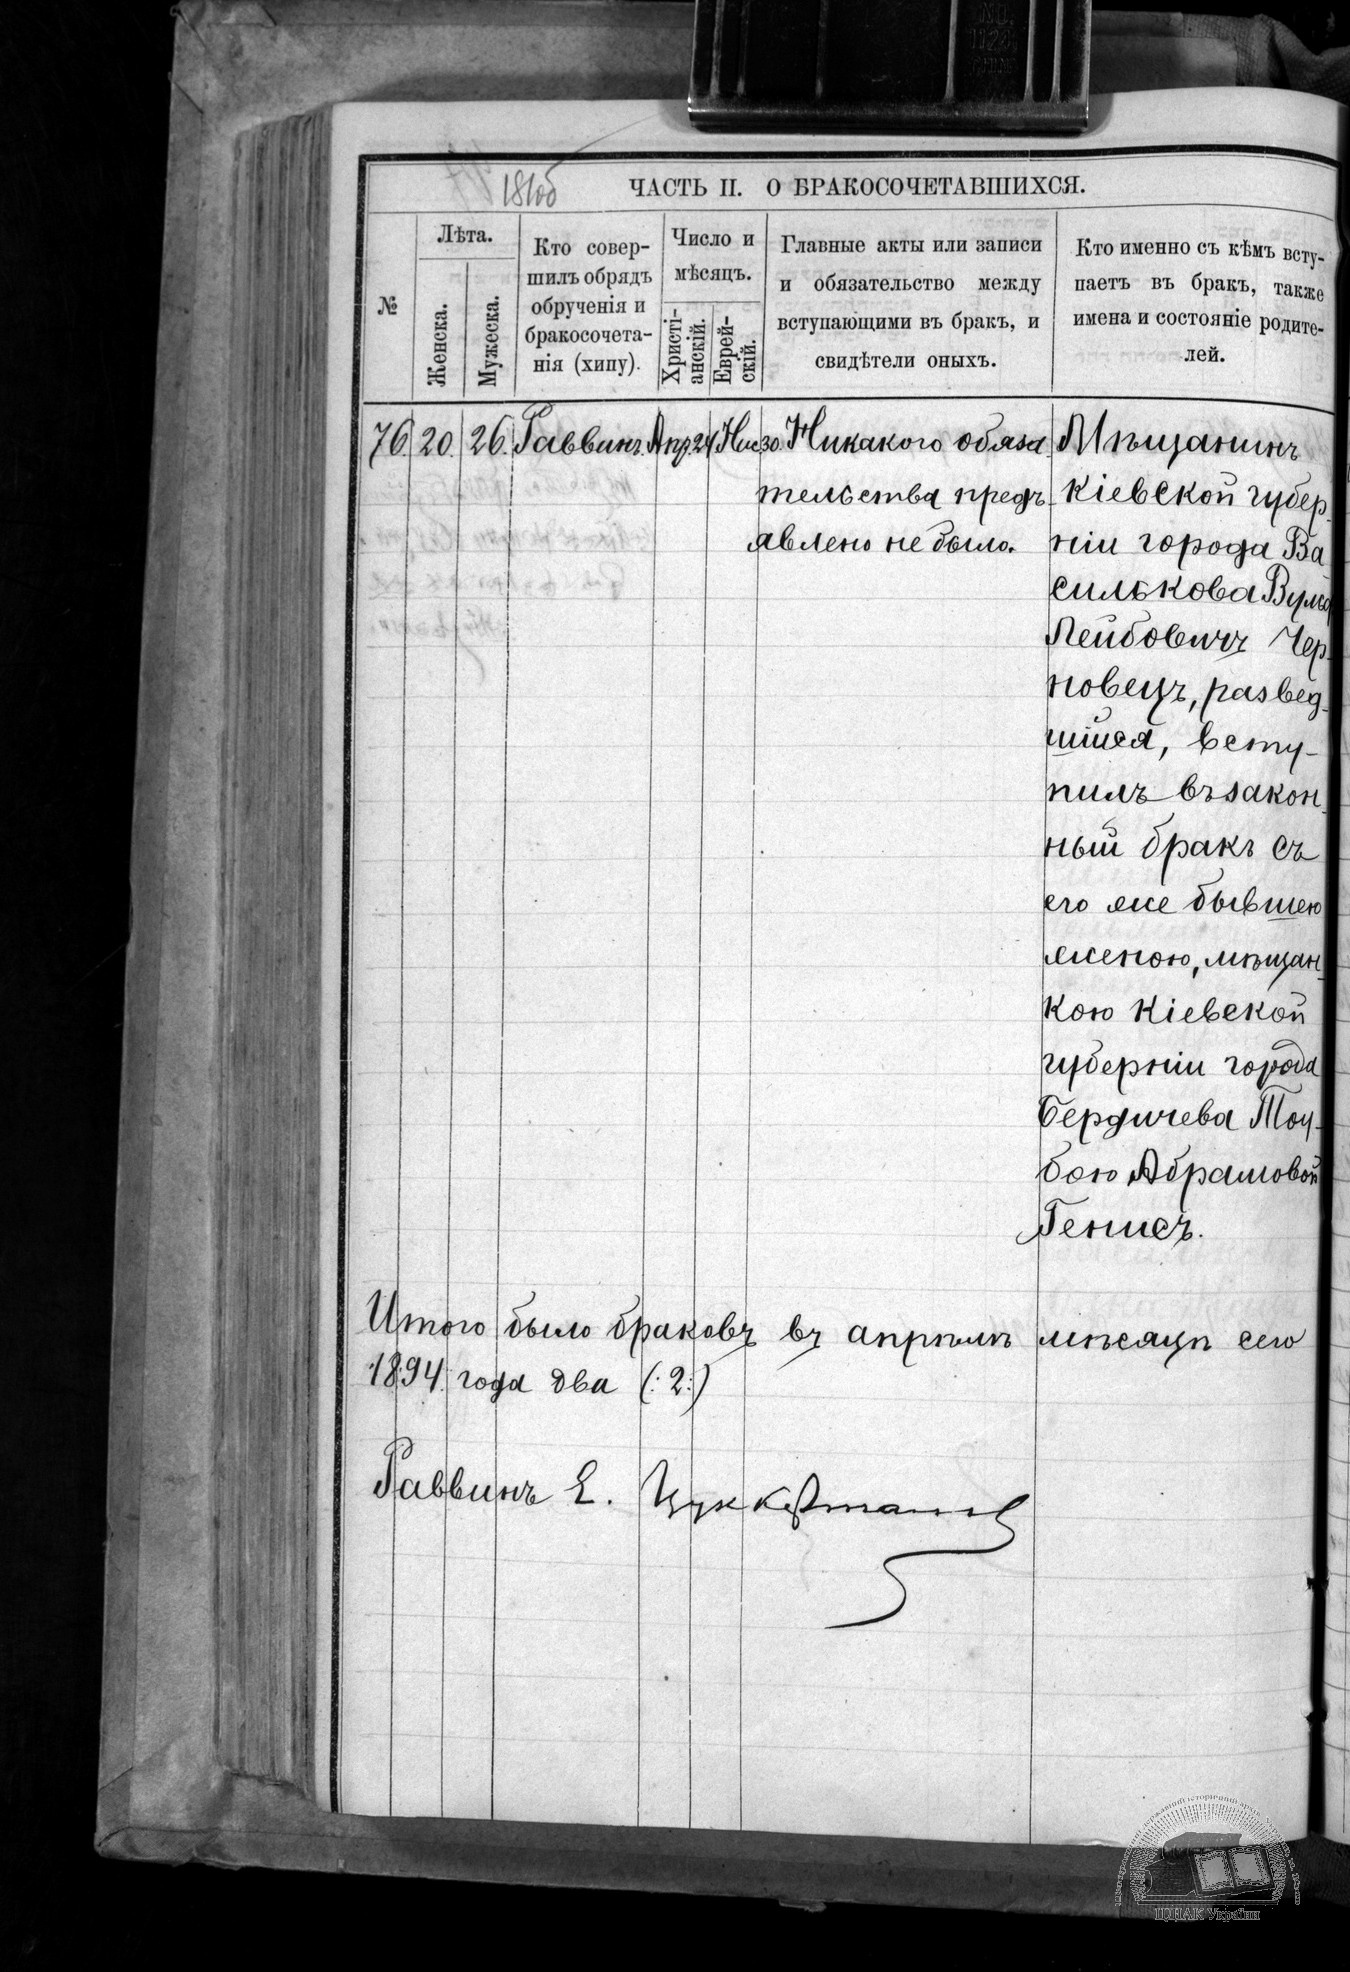 NO.
1124
181об
ЧАСТЬ II. О БРАКОСОЧЕТАВШИХСЯ.
№
Лѣта.
Женска.
Мужеска.
Кто совер-
шилъ обрядъ
обрученія и
бракосочета-
нія (хипу).
Число и
мѣсяцъ.
Христі-
анскій.
Еврей-
скій.
Главные акты или записи
и обязательство между
вступающими въ бракъ, и
свидѣтели оныхъ.
Кто именно съ кѣмъ всту-
паетъ въ бракъ, также
имена и состояніе родите-
лей.
76. 20. 26. Раввинъ. Апр. 24 Нис. 30.
Никакого обяза-
тельства предъ-
явлено не было.
Мѣщанинъ
Кіевской губер-
ніи города Ва-
силькова Вульф
Лейбовичъ Чер-
новецъ, развед-
шійся, всту-
пилъ въ закон-
ный бракъ съ
его же бывшею
женою, мѣщан-
кою Кіевской
губерніи города
Бердичева Тоу-
бою Абрамовой
Генисъ.
Итого было браковъ въ апрѣлѣ мѣсяцѣ сего
1894 года два (:2:)
Раввинъ Е. Цуккерманъ
ЦДІАК України